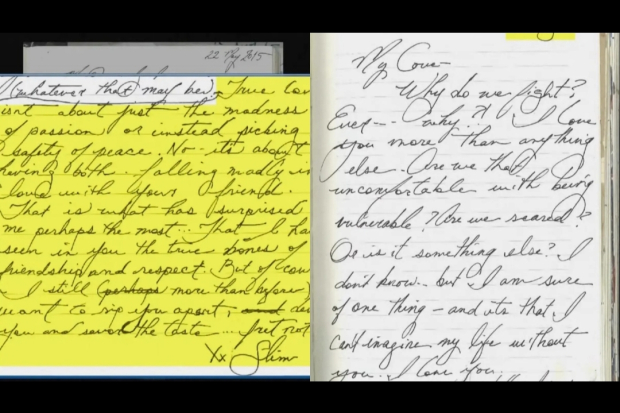 22 May 2015
(whatever that may be). True Lov
isn't about just the madness
of passion or instead picking
safety of peace. No - its about
having both. falling madly in
love with your friend.
That is what has surprised
me perhaps the most... That I ha
seen in you the true bones of
friendship and respect. But of cou
I still (perhaps more than before)
want to rip you apart,
you and savor the taste... fret not
Xx Slim
My Love -
Why do we fight?
Ever -- why..? I love
you more than anything
else. Are we that
uncomfortable with being
vulnerable? Are we scared?
Or is it something else? I
don't know.. but I am sure
of one thing - and its that I
can't imagine my life without
you. I love you.